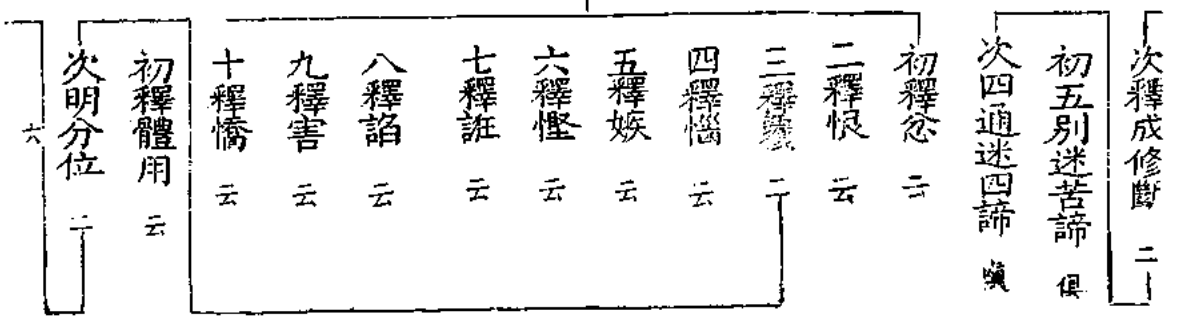 次釋成修斷 二
初五別迷苦諦 俱
次四通迷四諦 嗔
初釋忿 云
二釋恨 云
三釋覆 二
四釋惱 云
五釋嫉 云
六釋慳 云
七釋誑 云
八釋諂 云
九釋害 云
十釋憍 云
初釋體用 云
次明分位 二
六